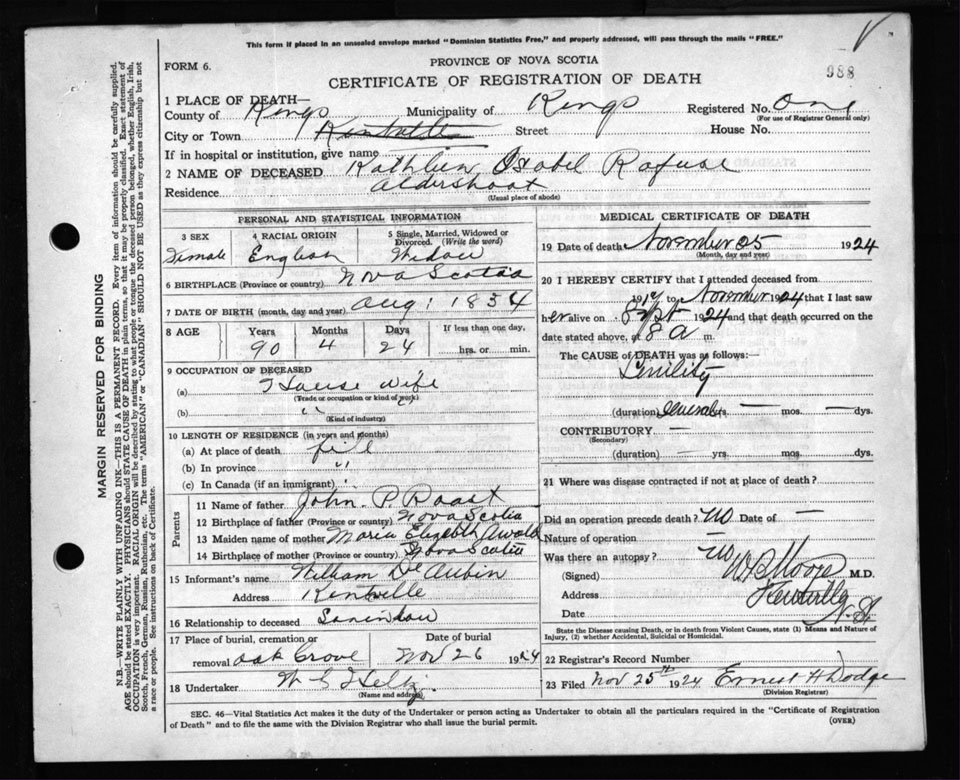 This form if placed in an unsealed envelope marked "Dominion Statistics Free," and properly addressed, will pass through the mails "FREE."
FORM 6.
PROVINCE OF NOVA SCOTIA
988
CERTIFICATE OF REGISTRATION OF DEATH
1 PLACE OF DEATH—
County of Kings Municipality of Kings Registered No. One
(For use of Registrar General only)
City or Town Kentville Street House No.
If in hospital or institution, give name
2 NAME OF DECEASED Kathleen Isabel Rafuse
Residence Aldershoot
(Usual place of abode)
PERSONAL AND STATISTICAL INFORMATION
3 SEX 4 RACIAL ORIGIN 5 Single, Married, Widowed or Divorced. (Write the word)
Female English Widow
6 BIRTHPLACE (Province or country) Nova Scotia
7 DATE OF BIRTH (month, day and year) Aug 1 1834
8 AGE Years Months Days If less than one day,
90 4 24 hrs. or min.
9 OCCUPATION OF DECEASED
(a) House wife
(Trade or occupation or kind of work)
(b) " "
(Kind of industry)
10 LENGTH OF RESIDENCE (in years and months)
(a) At place of death
(b) In province "
(c) In Canada (if an immigrant) "
Parents
11 Name of father John P. Roast
12 Birthplace of father (Province or country) Nova Scotia
13 Maiden name of mother Maria Elizabeth
14 Birthplace of mother (Province or country) Nova Scotia
15 Informant's name William De Aubin
Address Kentville
16 Relationship to deceased Soninlaw
17 Place of burial, cremation or removal Oak Grove
Date of burial Nov 26 1924
18 Undertaker
(Name and address)
MEDICAL CERTIFICATE OF DEATH
19 Date of death November 25 1924
(Month, day and year)
20 I HEREBY CERTIFY that I attended deceased from
19 to November 1924 that I last saw
her alive on Sept 1924 and that death occurred on the
date stated above, at 8 a m.
The CAUSE OF DEATH was as follows:
Senility
(duration) several yrs. — mos. — dys.
CONTRIBUTORY —
(Secondary)
(duration) — yrs. mos. dys.
21 Where was disease contracted if not at place of death?
Did an operation precede death? no Date of —
Nature of operation
Was there an autopsy? no
(Signed) W B Moore M.D.
Address Kentville
Date N.S.
State the Disease causing Death, or in death from Violent Causes, state (1) Means and Nature of Injury, (2) whether Accidental, Suicidal or Homicidal.
22 Registrar's Record Number
23 Filed Nov 25th 1924 Ernest H Dodge
(Division Registrar)
SEC. 46—Vital Statistics Act makes it the duty of the Undertaker or person acting as Undertaker to obtain all the particulars required in the "Certificate of Registration
of Death" and to file the same with the Division Registrar who shall issue the burial permit. (OVER)
MARGIN RESERVED FOR BINDING
N.B.—WRITE PLAINLY, WITH UNFADING INK—THIS IS A PERMANENT RECORD. Every item of information should be carefully supplied.
AGE should be stated EXACTLY. PHYSICIANS should STATE CAUSE OF DEATH in plain terms, so that it may be properly classified. Exact statement of
OCCUPATION is very important. RACIAL ORIGIN will be described by stating to what people or tongue the deceased person belonged, whether English, Irish,
Scotch, French, German, Russian, Ruthenian, etc. The terms "AMERICAN" or "CANADIAN" SHOULD NOT BE USED as they express citizenship but not
a race or people. See instructions on back of Certificate.